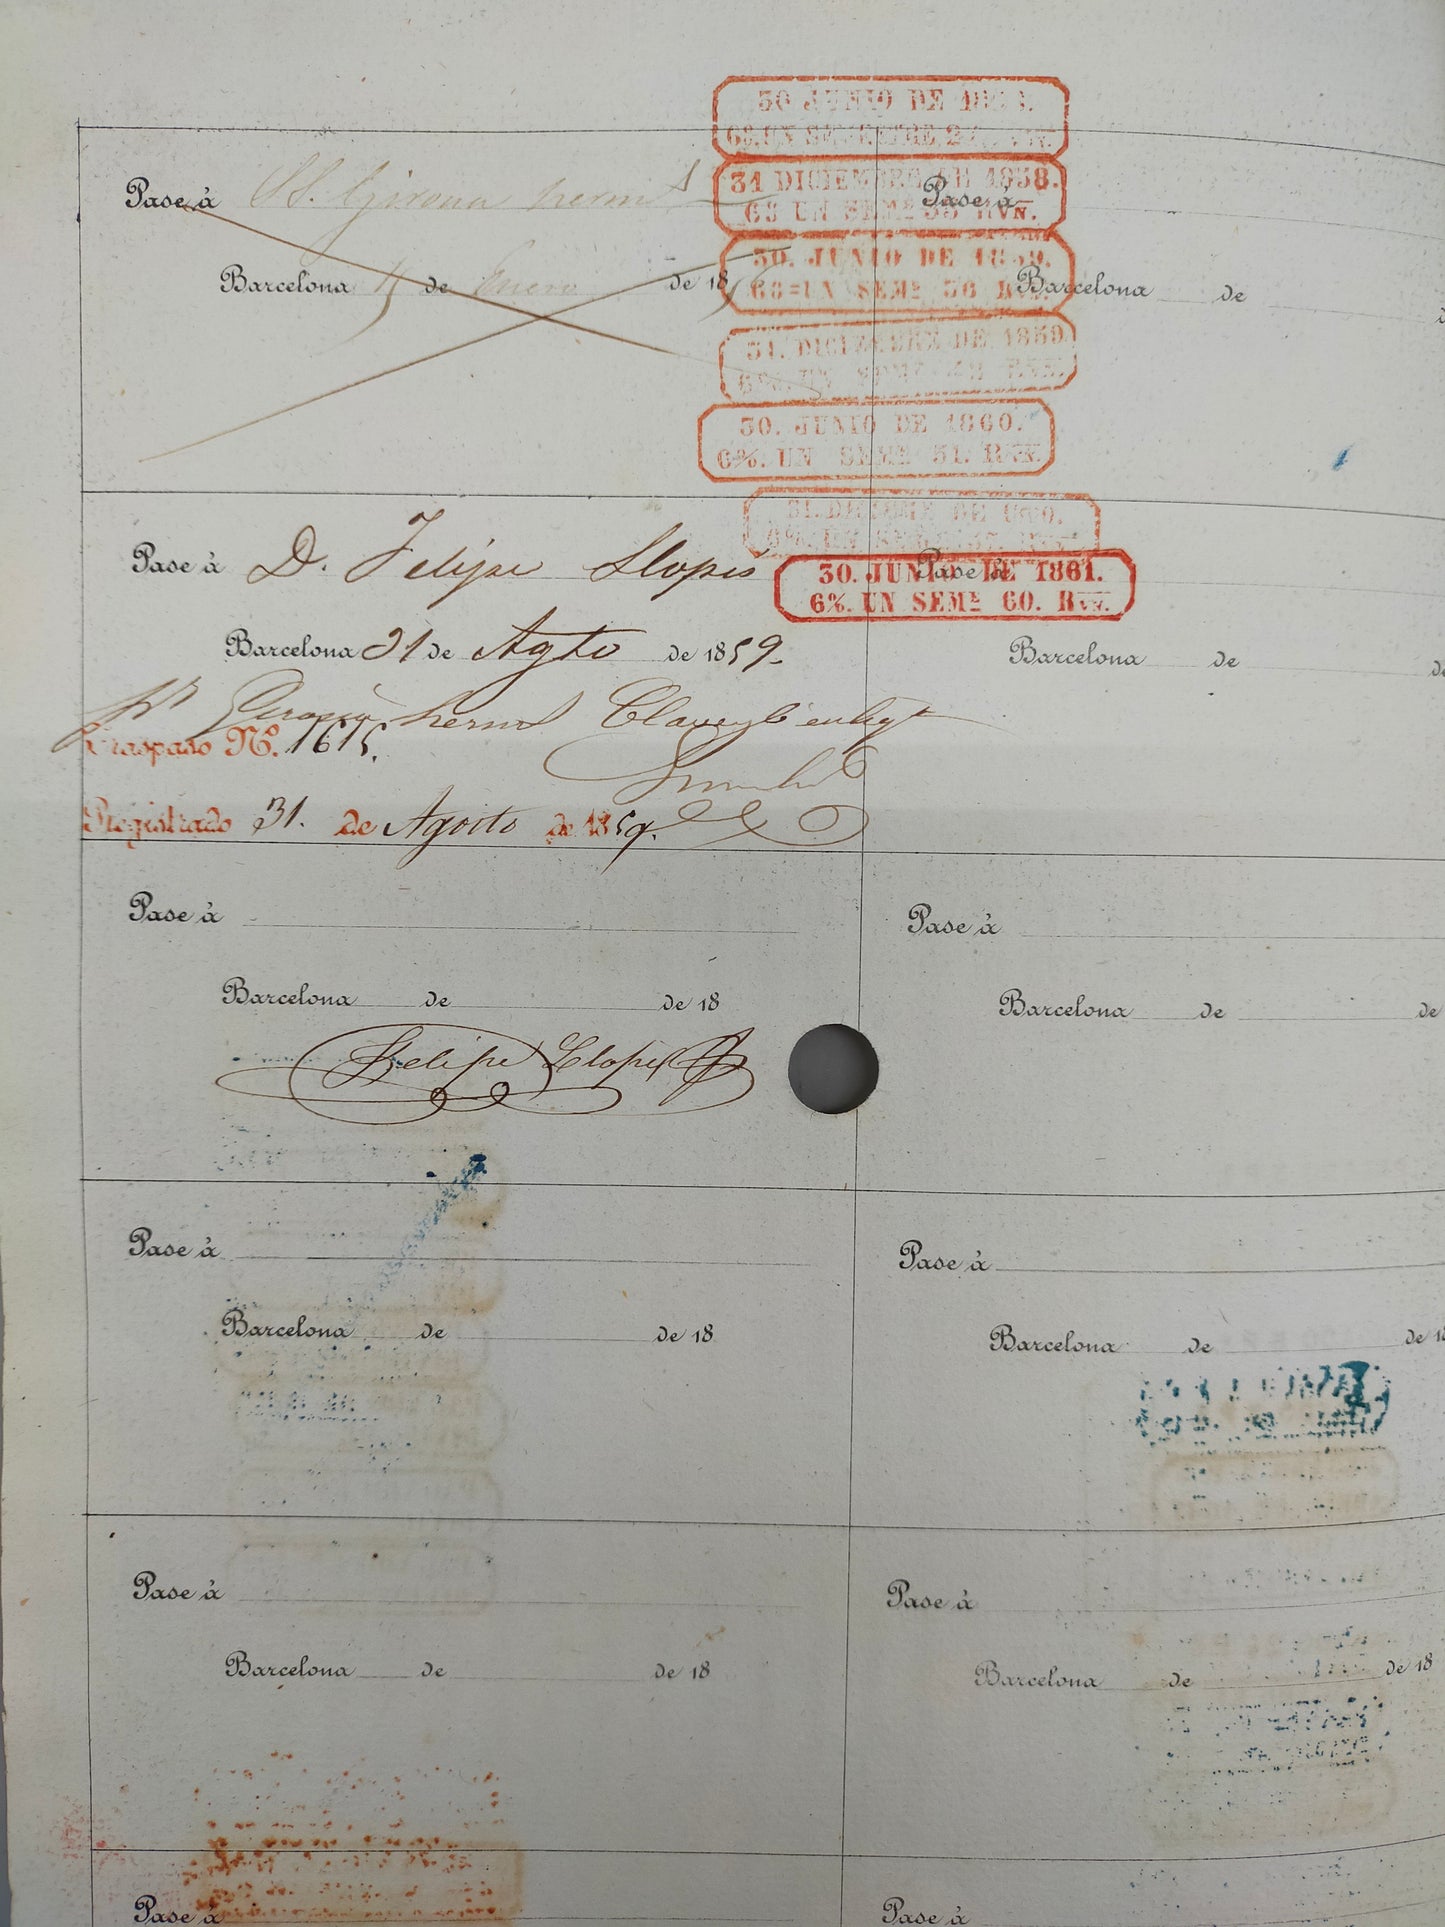 30 JUNIO DE
6%. UN SEMESTRE
31 DICIEMBRE DE 1858.
6% UN SEMᴱ 35 RVN.
30. JUNIO DE 1859.
6%=UN SEMᴱ 36 RVN.
31. DICIEMBRE DE 1859
6%. UN SEMᴱ RVN.
30. JUNIO DE 1860.
6%. UN SEMᴱ 51. RVN.
31. DICIEMBRE DE 1860.
6%. UN
30. JUNIO DE 1861.
6%. UN SEMᴱ 60. RVN.
Pase á SS. Girona hermˢ
Barcelona de Enero de 18
Pase á
Barcelona de
Pase á D. Felipe Llopis
Barcelona 31 de Agto de 1859.
Pase á
Barcelona de de
Girona hermˢ Clavé y
Traspaso Nº. 1615.
Registrado 31. de Agosto de 1859.
Pase á
Barcelona de de 18
Felipe Llopis
Pase á
Barcelona de de
Pase á
Barcelona de de 18
Pase á
Barcelona de de 18
Pase á
Barcelona de de 18
Pase á
Barcelona de de 18
Pase á
Pase á